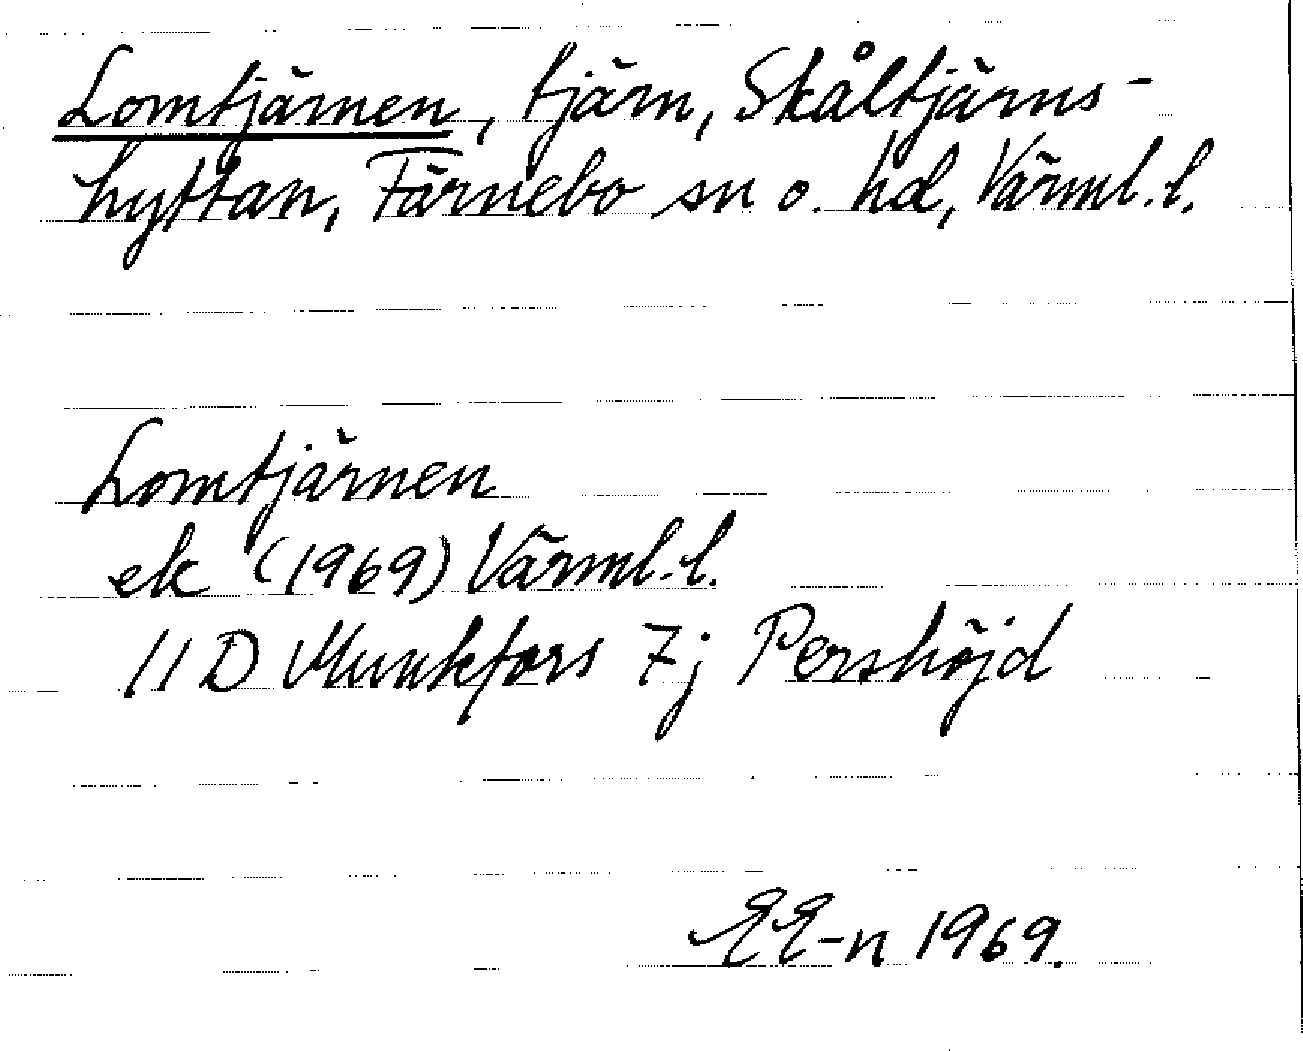 Lomtjärnen, tjärn, Skåltjärns-
hyttan, Färnebo sn o. hd, Värml.l.
Lomtjärnen
ek (1969) Värml.l.
11 D Munkfors 7j Pershöjd
EE-n 1969.